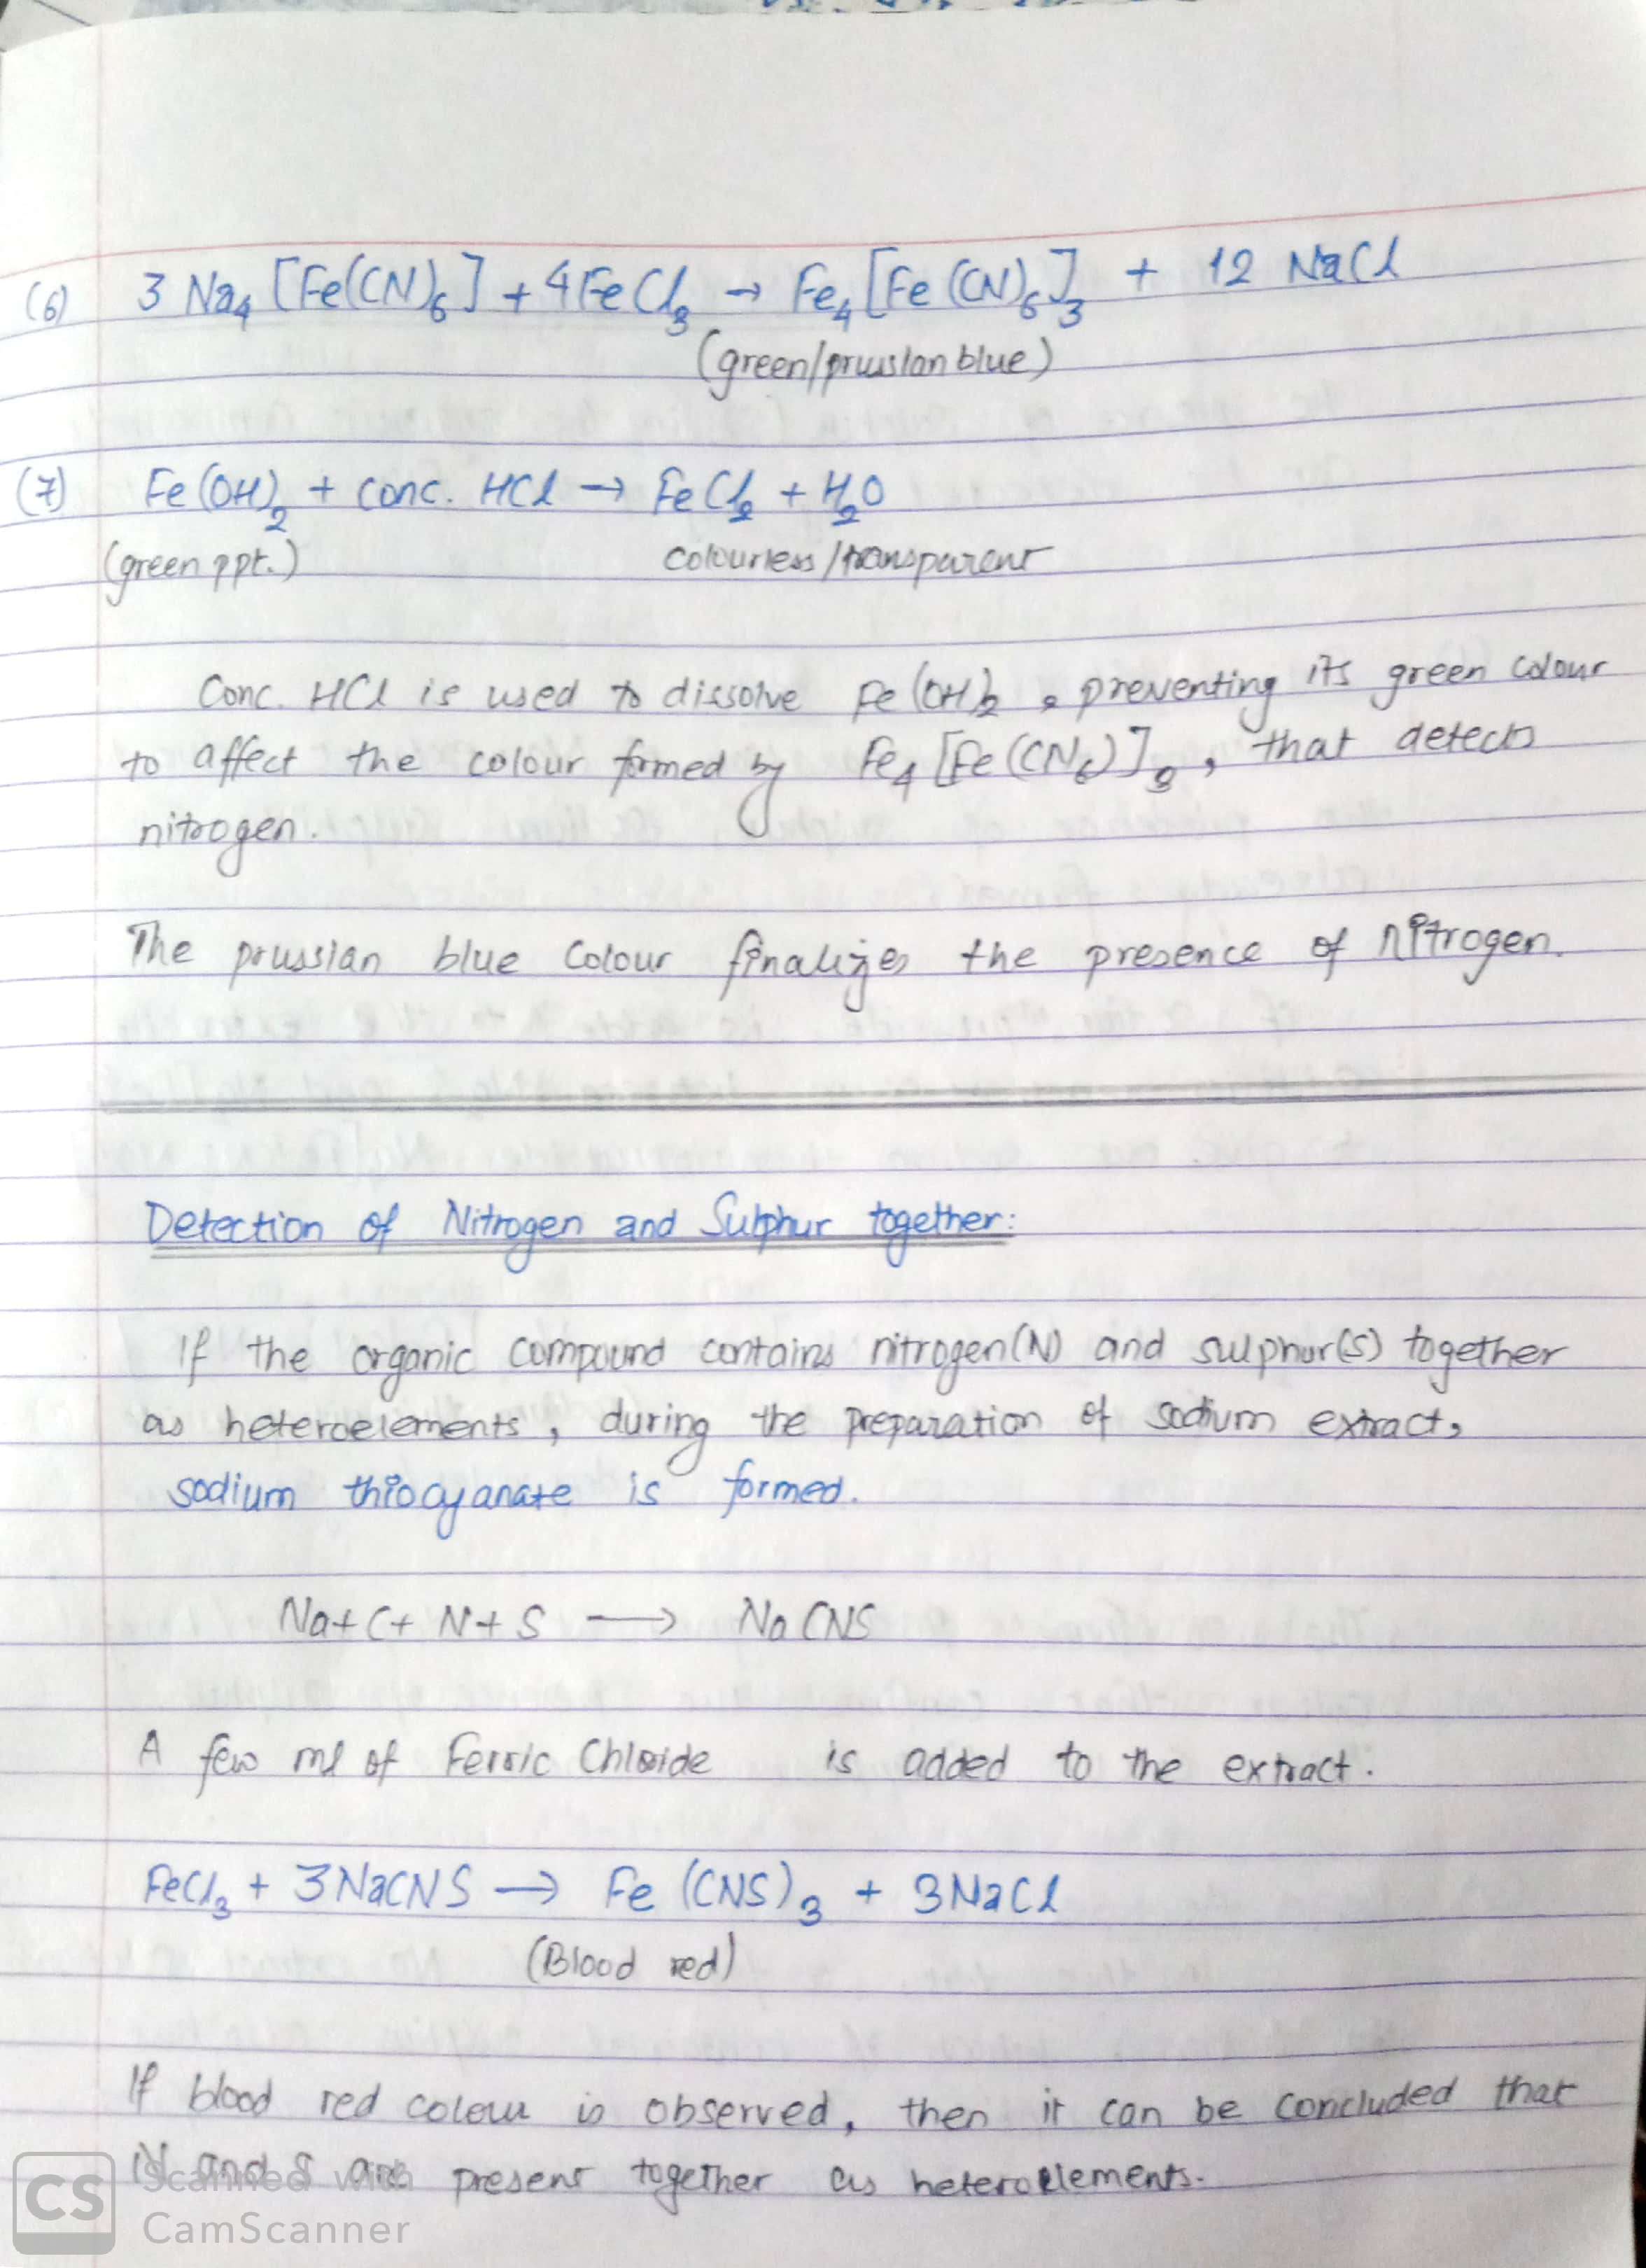 (6) 3 Na₄ [Fe(CN)₆] + 4FeCl₃ → Fe₄ [Fe(CN)₆]₃ + 12 NaCl
(green/prussian blue)
(7) Fe(OH)₂ + conc. HCl → FeCl₂ + H₂O
(green ppt.) colourless/transparent
Conc. HCl is used to dissolve Fe(OH)₂, preventing its green colour
to affect the colour formed by Fe₄ [Fe(CN₆)]₃, that detects
nitrogen.
The prussian blue colour finalizes the presence of nitrogen.
Detection of Nitrogen and Sulphur together:
If the organic compound contains nitrogen(N) and sulphur(S) together
as heteroelements, during the preparation of sodium extract,
sodium thiocyanate is formed.
Na+C+ N+ S → NaCNS
A few ml of Ferric Chloride is added to the extract.
FeCl₃ + 3NaCNS → Fe (CNS)₃ + 3NaCl
(Blood red)
If blood red colour is observed, then it can be concluded that
N and S are present together as heteroelements.
CS Scanned with
CamScanner